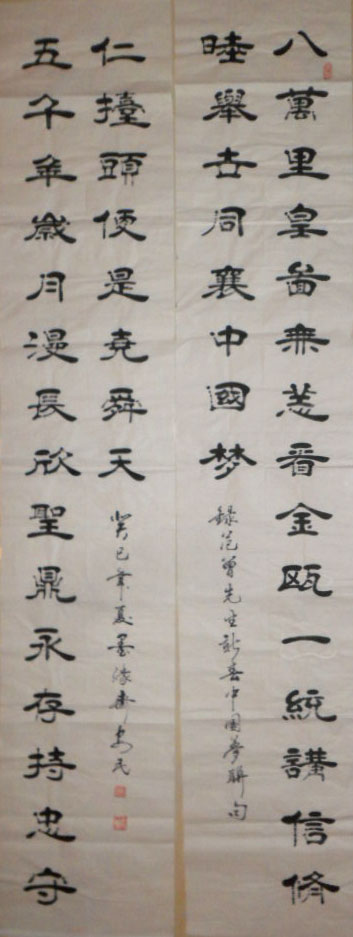 八萬里皇啚無恙看金甌一統講信脩
睦舉世同襄中國梦
錄范曾先生新春中國夢聯句
五千年歲月漫長欣聖鼎永存持忠守
仁擡頭便是堯舜天
癸巳年夏墨緣齋安民